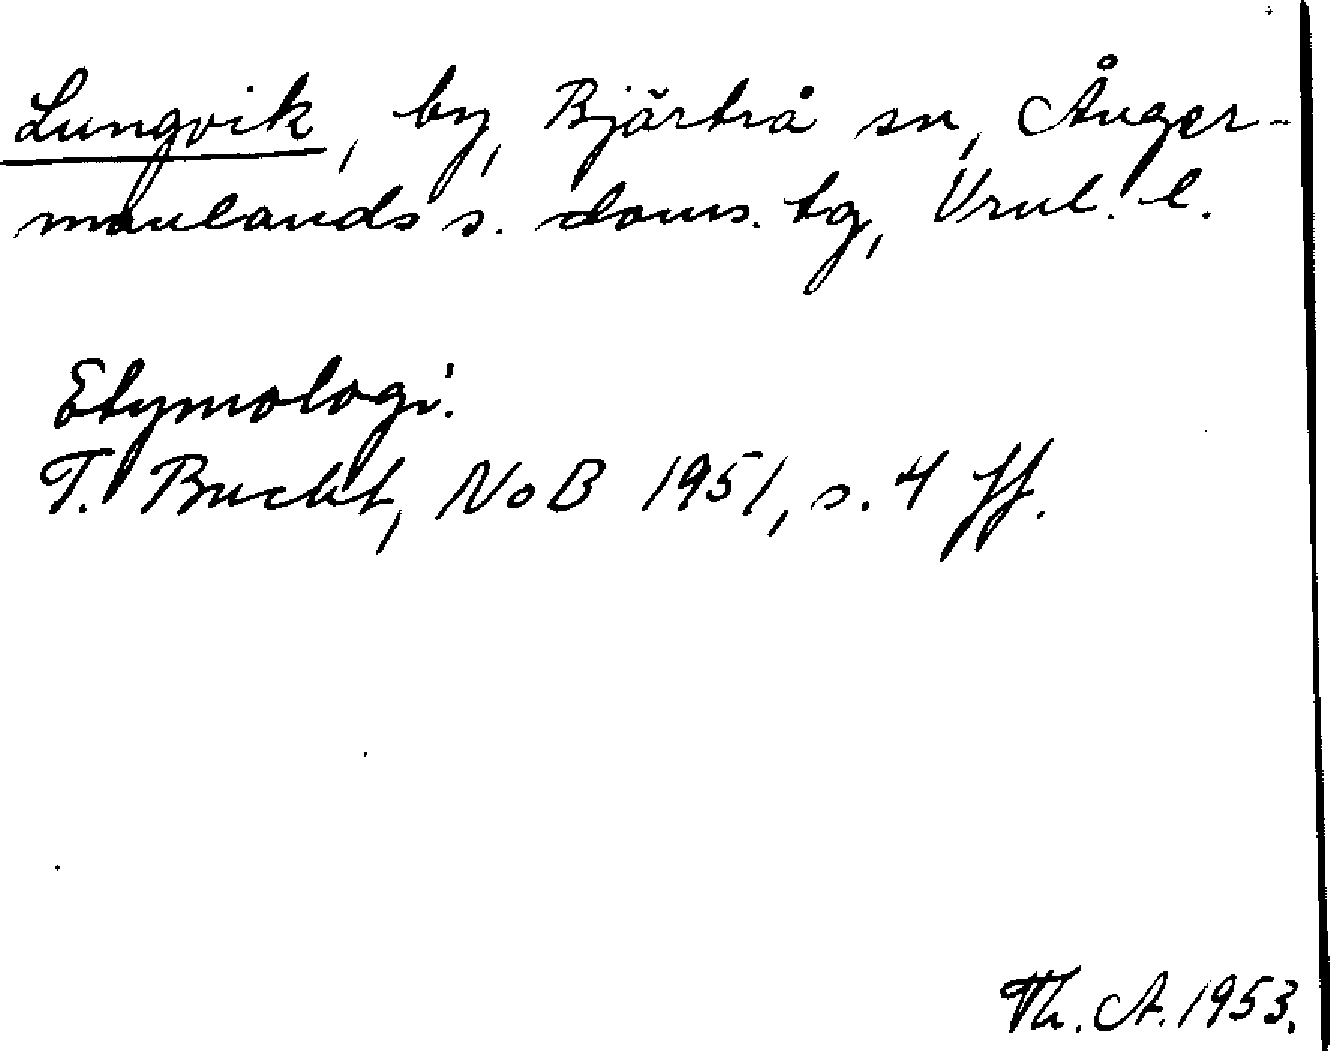 Lungvik, by, Bjärtrå sn, Ånger-
manlands s. doms. tg, Vrnl. l.
Etymologi:
T. Bucht, NoB 1951, s. 4 ff.
Th. A. 1953.